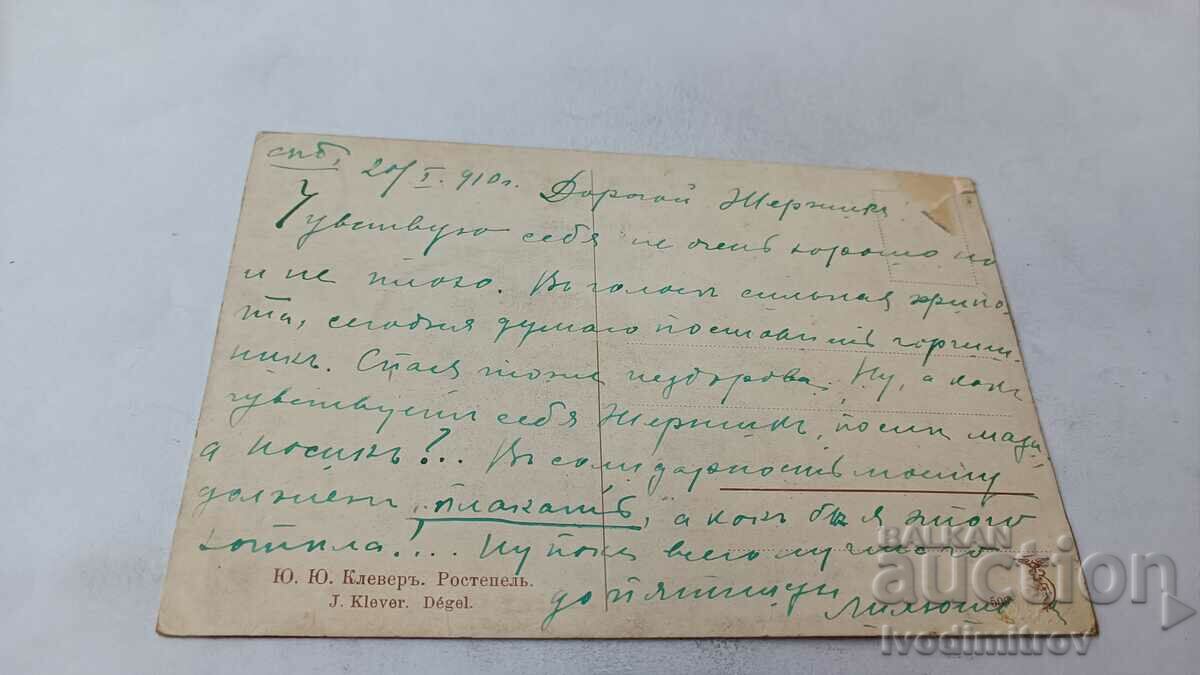 спб, 20/I. 910 г. Дорогой Жержик!
Чувствую себя не очень хорошо но
и не плохо. Въ голосѣ сильная хрипо-
та, сегодня думаю поставить горчиш-
никъ. Спала тоже нездорова. Ну, а какъ
чувствуетъ себя Жержикъ, носик
а носикъ?... Въ солидарность моему
должен плакать, а какъ бы я этого
хотѣла!... Ну пока всего лучшаго
до пятницы
Ю. Ю. Клеверъ. Ростепель.
J. Klever. Dégel.
BALKAN
auction
Ivodimitrov